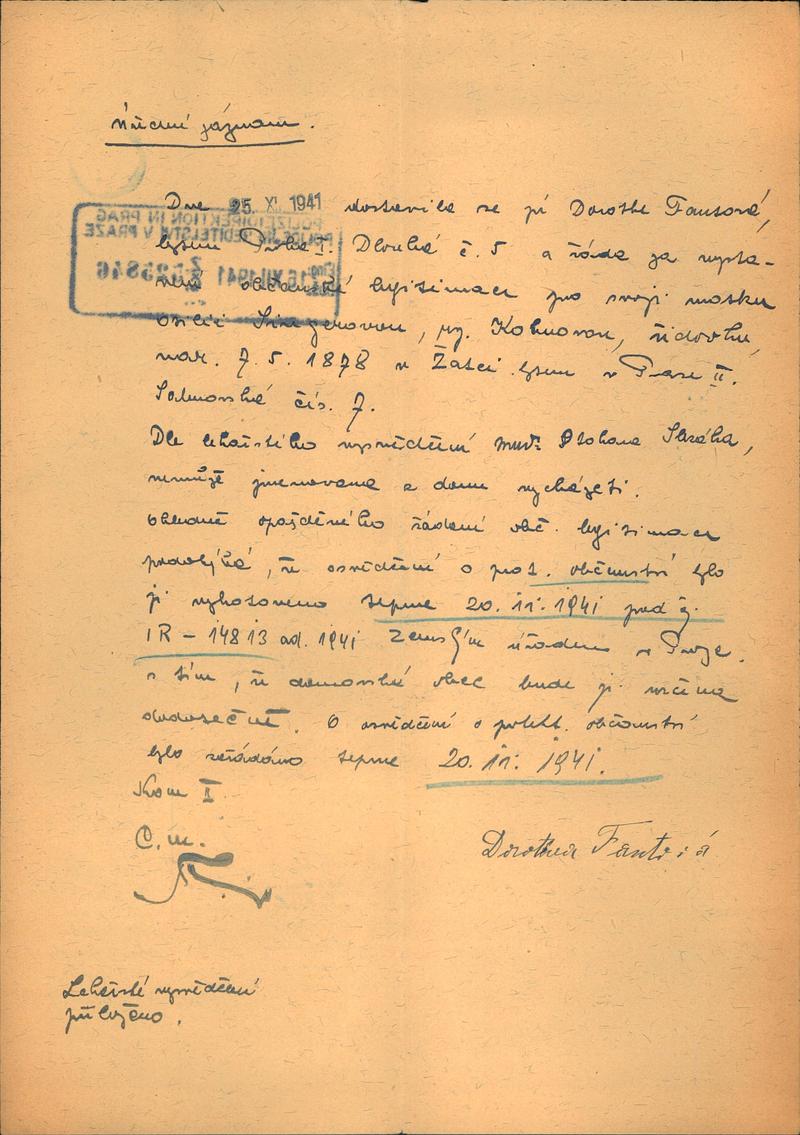 Úřední záznam.
Dne 25. XI. 1941 dostavila se pí Dorothe Fantová,
bytem Praha I. Dlouhá č. 5 a žádá za vysta-
vení občanské legitimace pro svoji matku
Singerovou, roz. Kohnovou, židovku,
nar. 7. 5. 1878 v Žatci bytem v Praze II.
Salmovská čís. 7.
Dle lékařského vysvědčení MUDr.
nemůže jmenovaná z domu vycházeti.
Ohledně opožděného žádání obč. legitimace
podotýká, že osvědčení o prot. občanství bylo
jí vyhotoveno teprve 20. 11. 1941 pod č.
IR – 14813 ad. 1941 Zemským úřadem v Praze.
s tím, že domovská obec bude jí určena
dodatečně. O osvědčení o protekt. občanství
bylo zažádáno teprve 20. 11. 1941.
Kom II
C.m.
Dorothea Fantová
Lékařské vysvědčení
přiloženo.
POLIZEIDIREKTION IN PRAG
POLICEJNÍ ŘEDITELSTVÍ V PRAZE
16.XII.1941